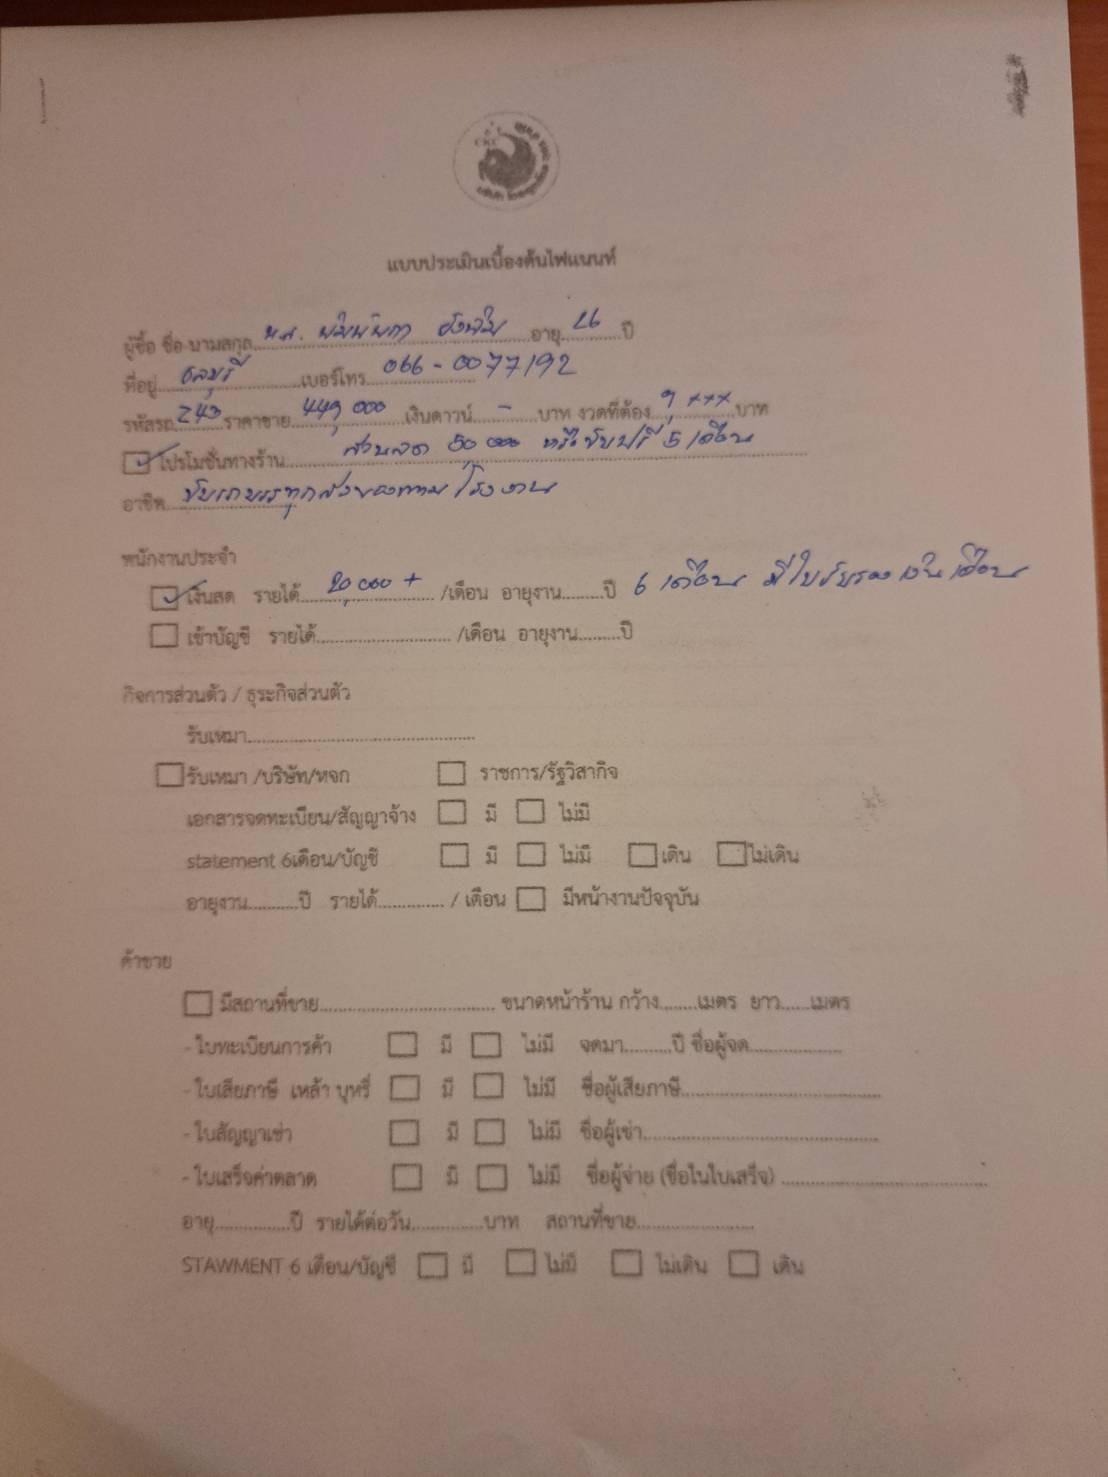 แบบประเมินเบื้องต้นไฟแนนท์
ผู้ซื้อ ชื่อ-นามสกุล น.ส. อายุ 26 ปี
ที่อยู่ ชลบุรี เบอร์โทร 066-0077192
รหัสรถ 243 ราคาขาย 449,000 เงินดาวน์ - บาท งวดที่ต้อง 9,xxx บาท
โปรโมชั่นทางร้าน ส่วนลด 50,000 หรือขับฟรี 5 เดือน
อาชีพ ขับรถบรรทุกส่งของตามโรงงาน
พนักงานประจำ
เงินสด รายได้ 20,000+ /เดือน อายุงาน ปี 6 เดือน มีใบรับรองเงินเดือน
เข้าบัญชี รายได้ /เดือน อายุงาน ปี
กิจการส่วนตัว / ธุระกิจส่วนตัว
รับเหมา
รับเหมา /บริษัท/หจก ราชการ/รัฐวิสากิจ
เอกสารจดทะเบียน/สัญญาจ้าง มี ไม่มี
statement 6เดือน/บัญชี มี ไม่มี เดิน ไม่เดิน
อายุงาน ปี รายได้ / เดือน มีหน้างานปัจจุบัน
ค้าขาย
มีสถานที่ขาย ขนาดหน้าร้าน กว้าง เมตร ยาว เมตร
- ใบทะเบียนการค้า มี ไม่มี จดมา ปี ชื่อผู้จด
- ใบเสียภาษี เหล้า บุหรี่ มี ไม่มี ชื่อผู้เสียภาษี
- ใบสัญญาเช่า มี ไม่มี ชื่อผู้เช่า
- ใบเสร็จค่าตลาด มี ไม่มี ชื่อผู้จ่าย (ชื่อในใบเสร็จ)
อายุ ปี รายได้ต่อวัน บาท สถานที่ขาย
STAWMENT 6 เดือน/บัญชี มี ไม่มี ไม่เดิน เดิน